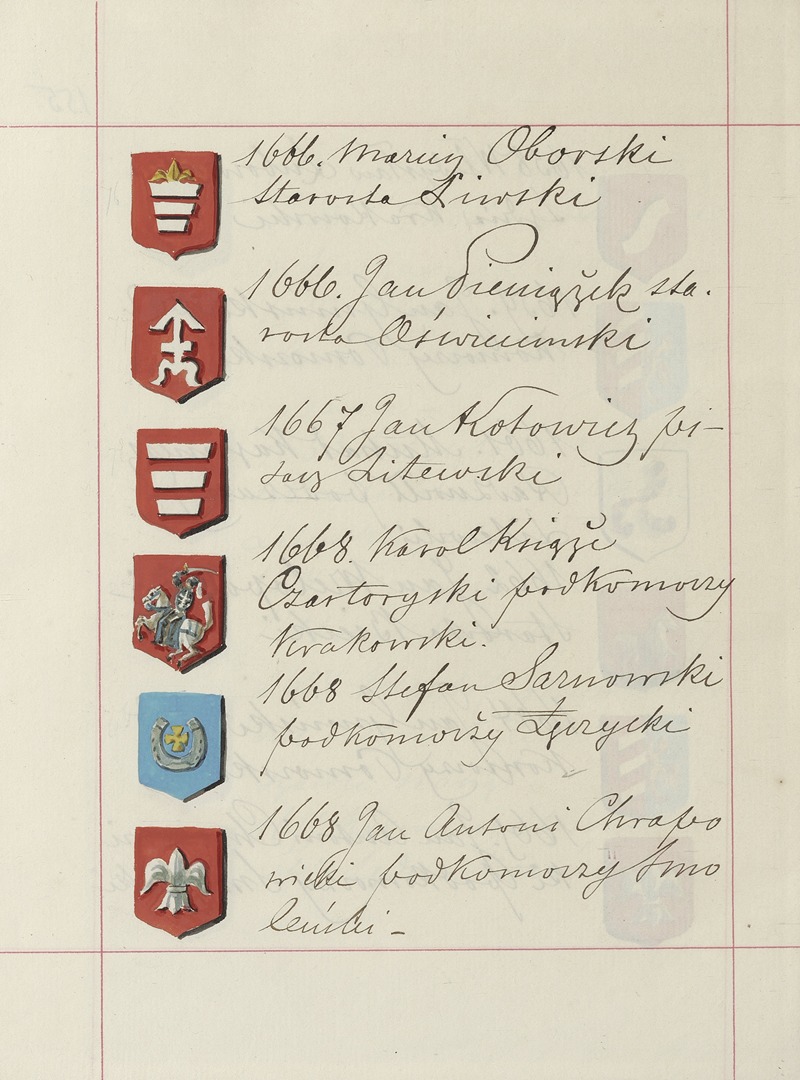 1666. Marcin Oborski
starosta Liwski
1666. Jan Pieniążek sta.
rosta Oświecimski
1667 Jan Kotowicz pi-
sarz Litewski
1668. Karol Książe
Czartoryski podkomorzy
Krakowski.
1668 Stefan Sarnowski
podkomorży Łęczycki
1668 Jan Antoni Chrapo
wicki podkomorzy Smo
leński -